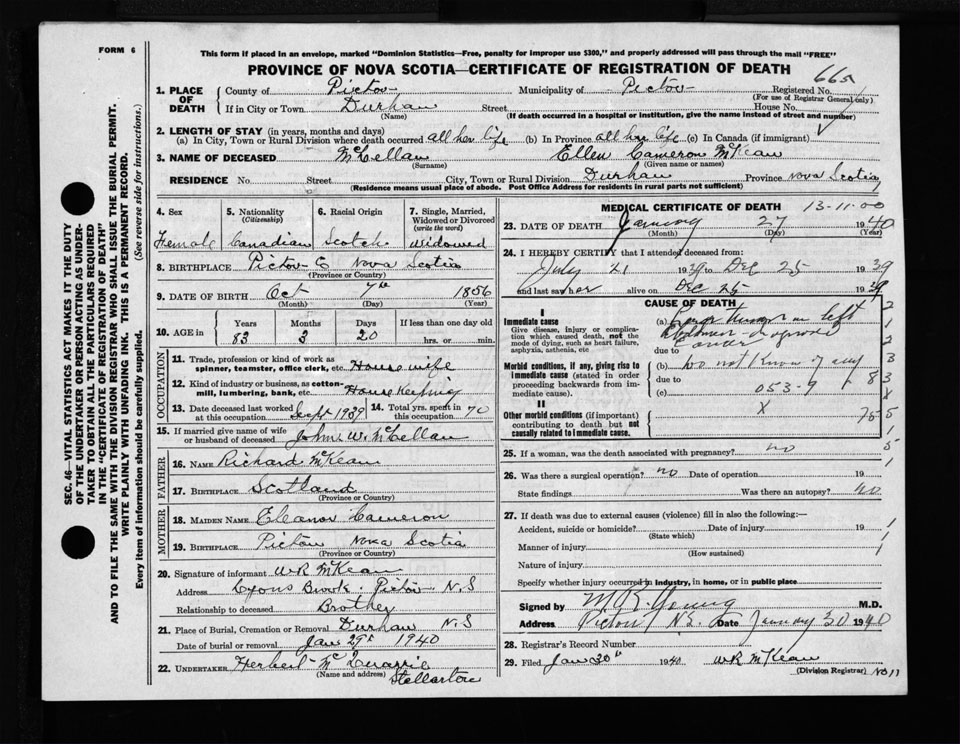 FORM 6
This form if placed in an envelope, marked "Dominion Statistics—Free, penalty for improper use $300," and properly addressed will pass through the mail "FREE"
PROVINCE OF NOVA SCOTIA—CERTIFICATE OF REGISTRATION OF DEATH
665
1. PLACE OF DEATH County of Pictou Municipality of Pictou Registered No.
(For use of Registrar General only)
If in City or Town Durham Street House No.
(Name) (If death occurred in a hospital or institution, give the name instead of street and number)
2. LENGTH OF STAY (in years, months and days)
(a) In City, Town or Rural Division where death occurred all her life (b) In Province all her life (c) In Canada (if immigrant)
3. NAME OF DECEASED McLellan Ellen Cameron McKean
(Surname) (Given name or names)
RESIDENCE No. Street City, Town or Rural Division Durham Province Nova Scotia
(Residence means usual place of abode. Post Office Address for residents in rural parts not sufficient)
4. Sex 5. Nationality (Citizenship) 6. Racial Origin 7. Single, Married, Widowed or Divorced (write the word)
Female Canadian Scotch Widowed
8. BIRTHPLACE Pictou C Nova Scotia
(Province or Country)
9. DATE OF BIRTH Oct 7th 1856
(Month) (Day) (Year)
10. AGE in Years Months Days If less than one day old
83 3 20 hrs. or min.
OCCUPATION
11. Trade, profession or kind of work as spinner, teamster, office clerk, etc. Housewife
12. Kind of industry or business, as cotton-mill, lumbering, bank, etc. House Keeping
13. Date deceased last worked at this occupation Sept 1939 14. Total yrs. spent in this occupation 70
15. If married give name of wife or husband of deceased John W. McLellan
FATHER
16. NAME Richard McKean
17. BIRTHPLACE Scotland
(Province or Country)
MOTHER
18. MAIDEN NAME Eleanor Cameron
19. BIRTHPLACE Pictou Nova Scotia
(Province or Country)
20. Signature of informant W R McKean
Address Lyons Brook Pictou N.S
Relationship to deceased Brother
21. Place of Burial, Cremation or Removal Durham N.S
Date of burial or removal Jan 29th 1940
22. UNDERTAKER Herbert McQuarrie
(Name and address) Stellarton
MEDICAL CERTIFICATE OF DEATH 13-11-00
23. DATE OF DEATH January 27 1940
(Month) (Day) (Year)
24. I HEREBY CERTIFY that I attended deceased from:
July 21 1939 to Dec 25 1939
and last saw her alive on Dec 25 1939
CAUSE OF DEATH
I
Immediate cause
Give disease, injury or complication which caused death, not the mode of dying, such as heart failure, asphyxia, asthenia, etc
(a) left
due to Cancer
Morbid conditions, if any, giving rise to immediate cause (stated in order proceeding backwards from immediate cause).
(b) Do not know of any
due to
(c) 053-9
II
Other morbid conditions (if important) contributing to death but not causally related to immediate cause.
X
25. If a woman, was the death associated with pregnancy? no
26. Was there a surgical operation? no Date of operation 19
State findings Was there an autopsy? no
27. If death was due to external causes (violence) fill in also the following:—
Accident, suicide or homicide? Date of injury 19
(State which)
Manner of injury
(How sustained)
Nature of injury
Specify whether injury occurred in industry, in home, or in public place
Signed by M.D.
Address Pictou N.S. Date January 30 1940
28. Registrar's Record Number
29. Filed Jan 30th 1940 W R McKean
(Division Registrar) No 11
SEC. 46—VITAL STATISTICS ACT MAKES IT THE DUTY
OF THE UNDERTAKER OR PERSON ACTING AS UNDERTAKER TO OBTAIN ALL THE PARTICULARS REQUIRED
IN THE "CERTIFICATE OF REGISTRATION OF DEATH"
AND TO FILE THE SAME WITH THE DIVISION REGISTRAR WHO SHALL ISSUE THE BURIAL PERMIT.
WRITE PLAINLY WITH UNFADING INK. THIS IS A PERMANENT RECORD.
Every item of information should be carefully supplied. (See reverse side for instructions.)